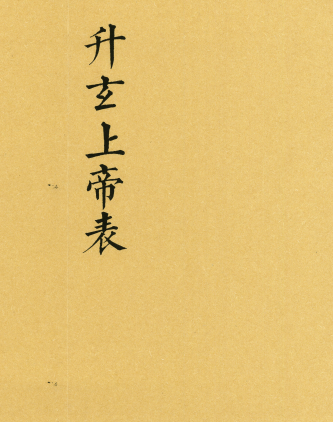 升玄上帝表